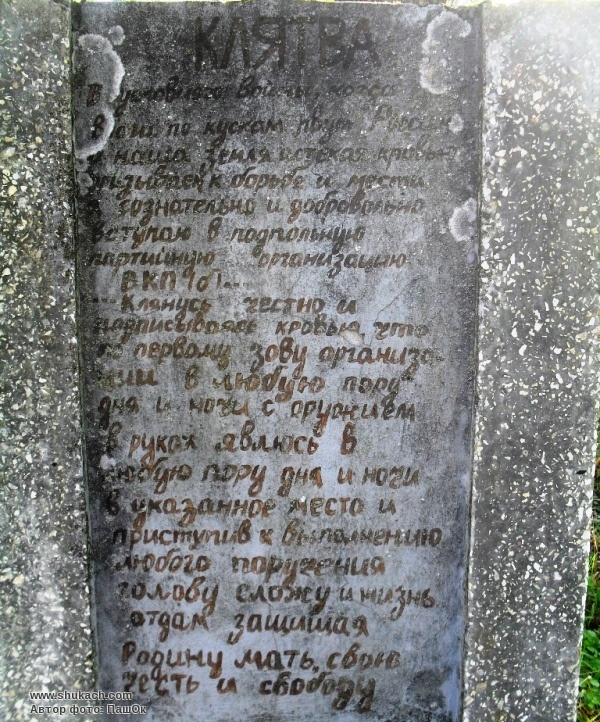 КЛЯТВА
В условиях войны, когда
по кускам рвут
наша земля истекая кровью
к борьбе и мести
сознательно и добровольно
вступаю в подпольную
партийную организацию
ВКП(б)...
...Клянусь честно и
подписываясь кровью, что
по первому зову организа-
ции в любую пору
дня и ночи с оружием
в руках явлюсь в
любую пору дня и ночи
в указанное место и
приступив к выполнению
любого поручения
голову сложу и жизнь
отдам защищая
Родину мать, свою
честь и свободу
www.shukach.com
Автор фото: ПашОк